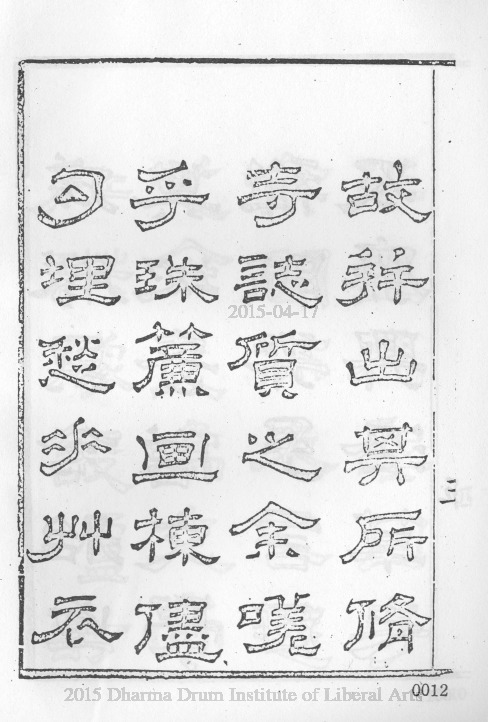 故并出其所脩
寺誌質之余
乎珠簾画棟儘
勾埋愁水艸衣
2015-04-17
2015 Dharma Drum Institute of Liberal Arts
0012